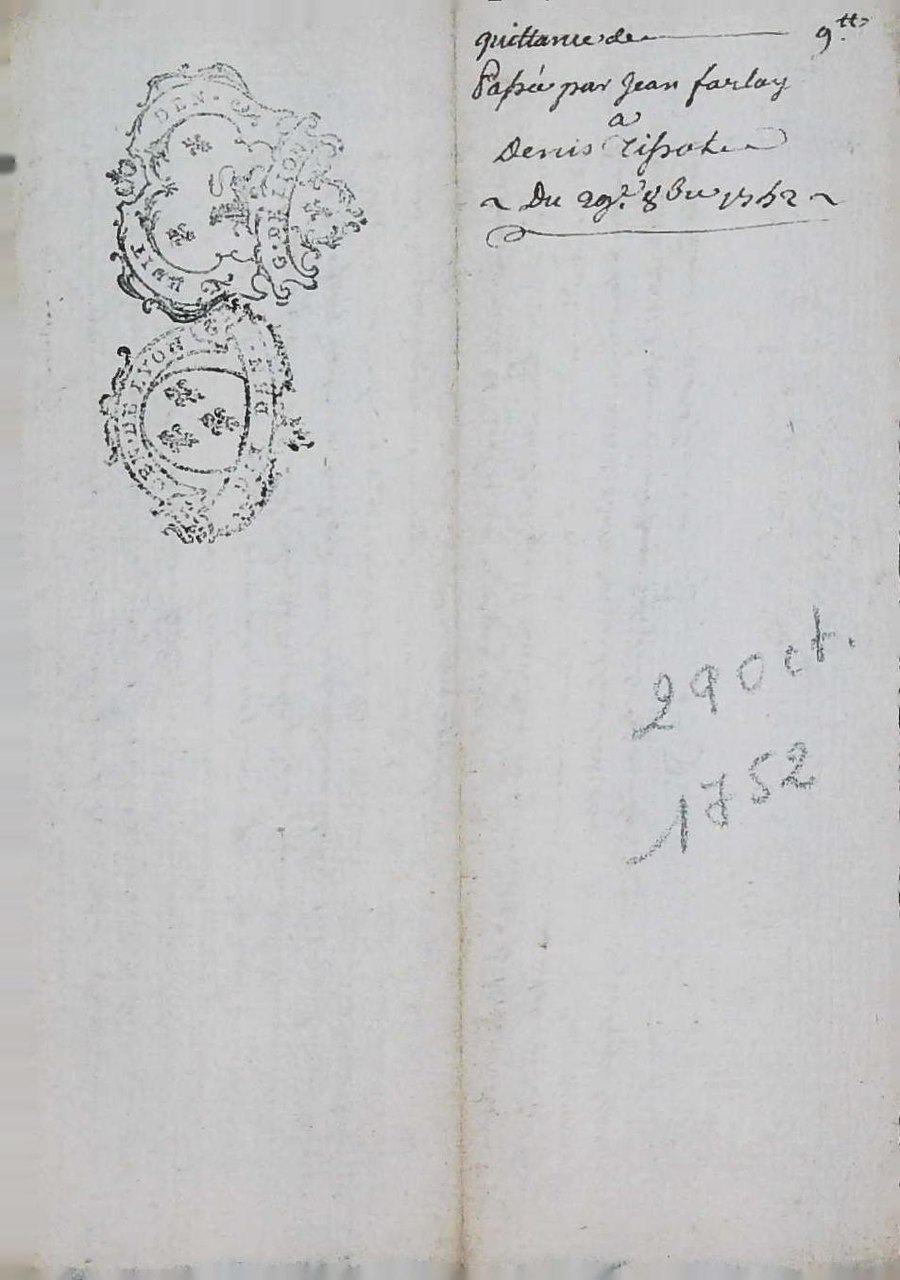 DEN.
G. DE LION
G. DE LYON
quittance de 9.tt
Passée par Jean farlay
a
Denis Tissot
Du 29e. 8bre 1752
29 Oct.
1752